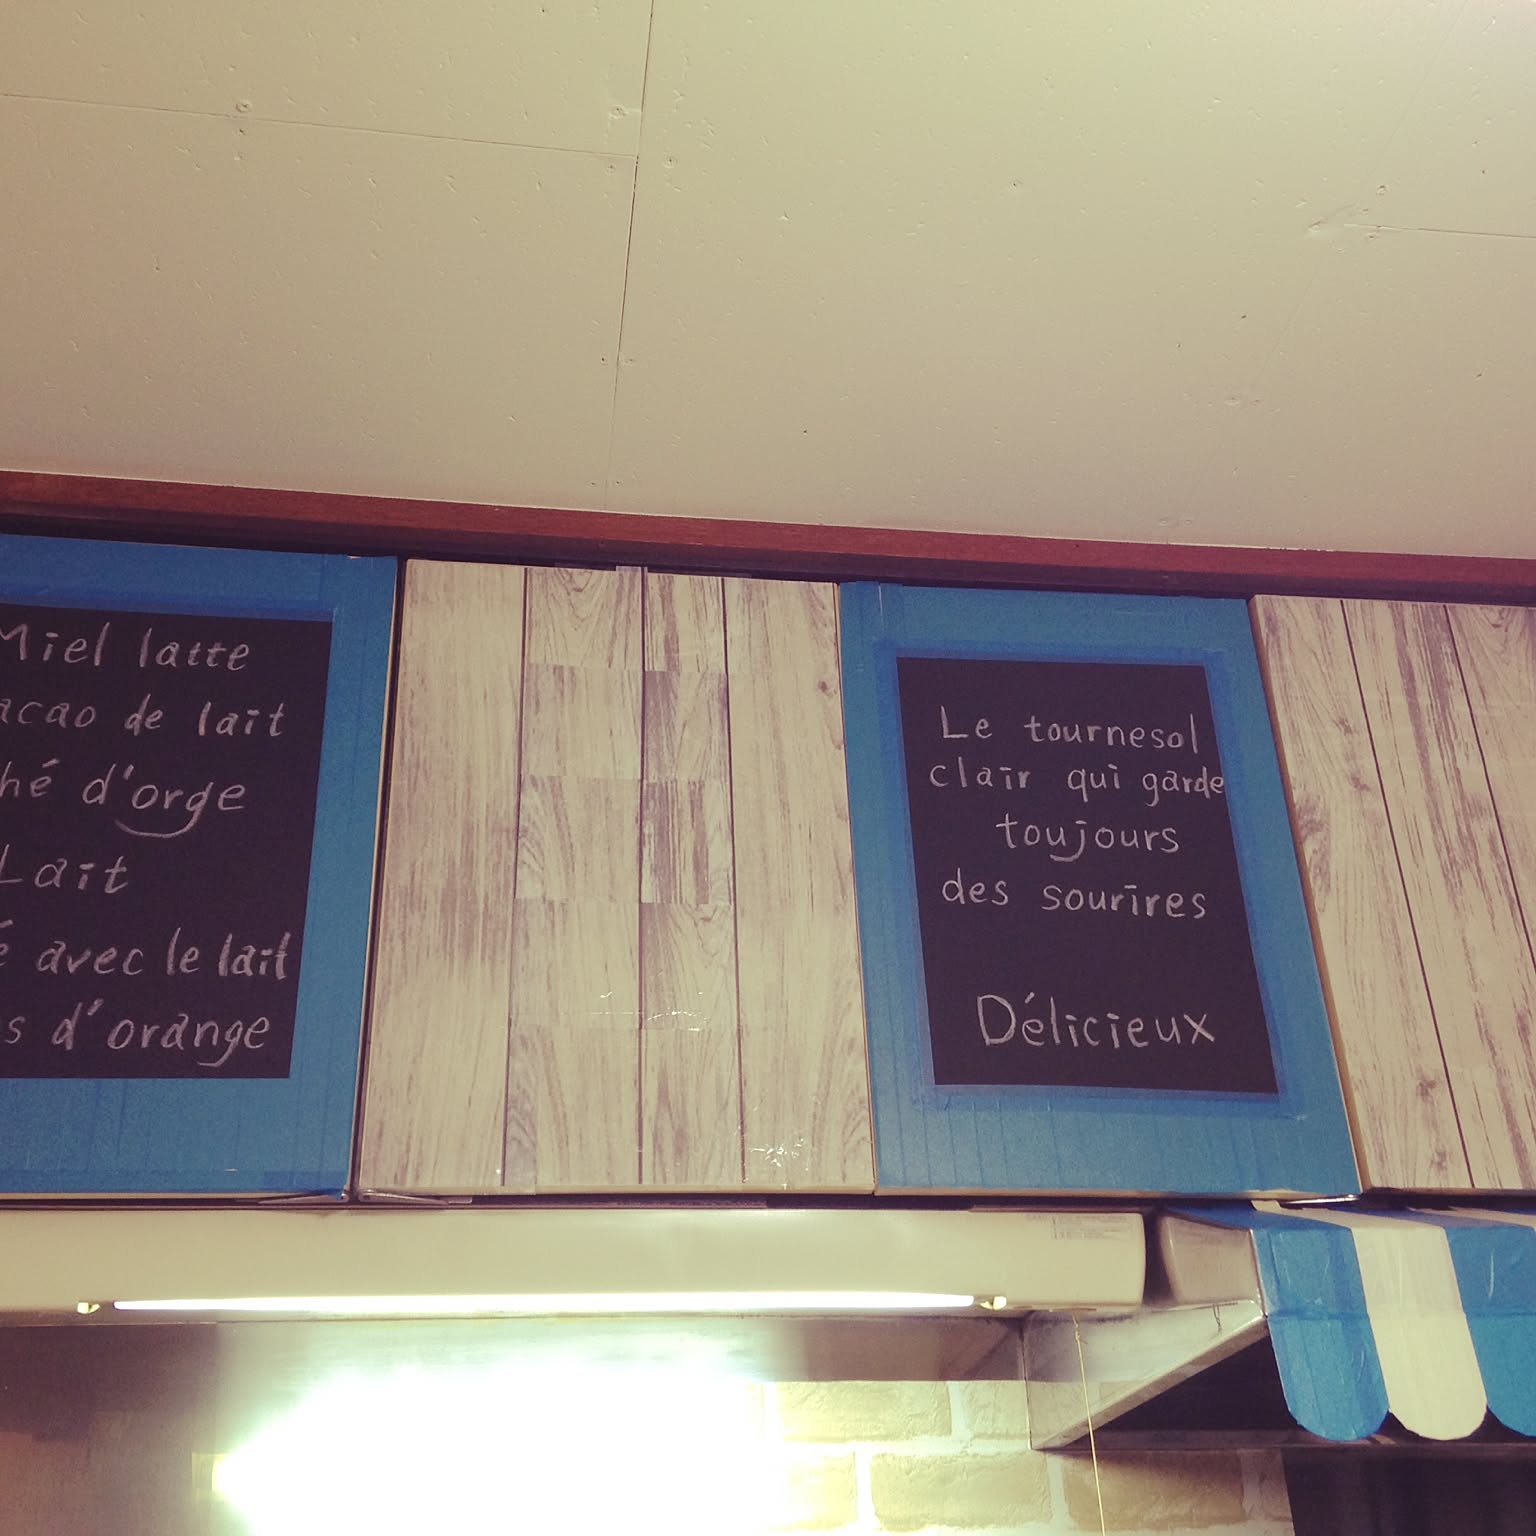 Miel latte
de lait
d'orge
Lait
avec le lait
d'orange
Le tournesol
clair qui garde
toujours
des sourires
Délicieux